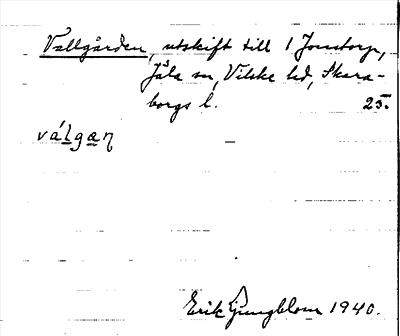 Vallgården, utskift till 1 Jonstorp,
Jäla sn, Vilske hd, Skara-
borgs l. 25.
válgaŋ
Erik Ljungblom 1940.